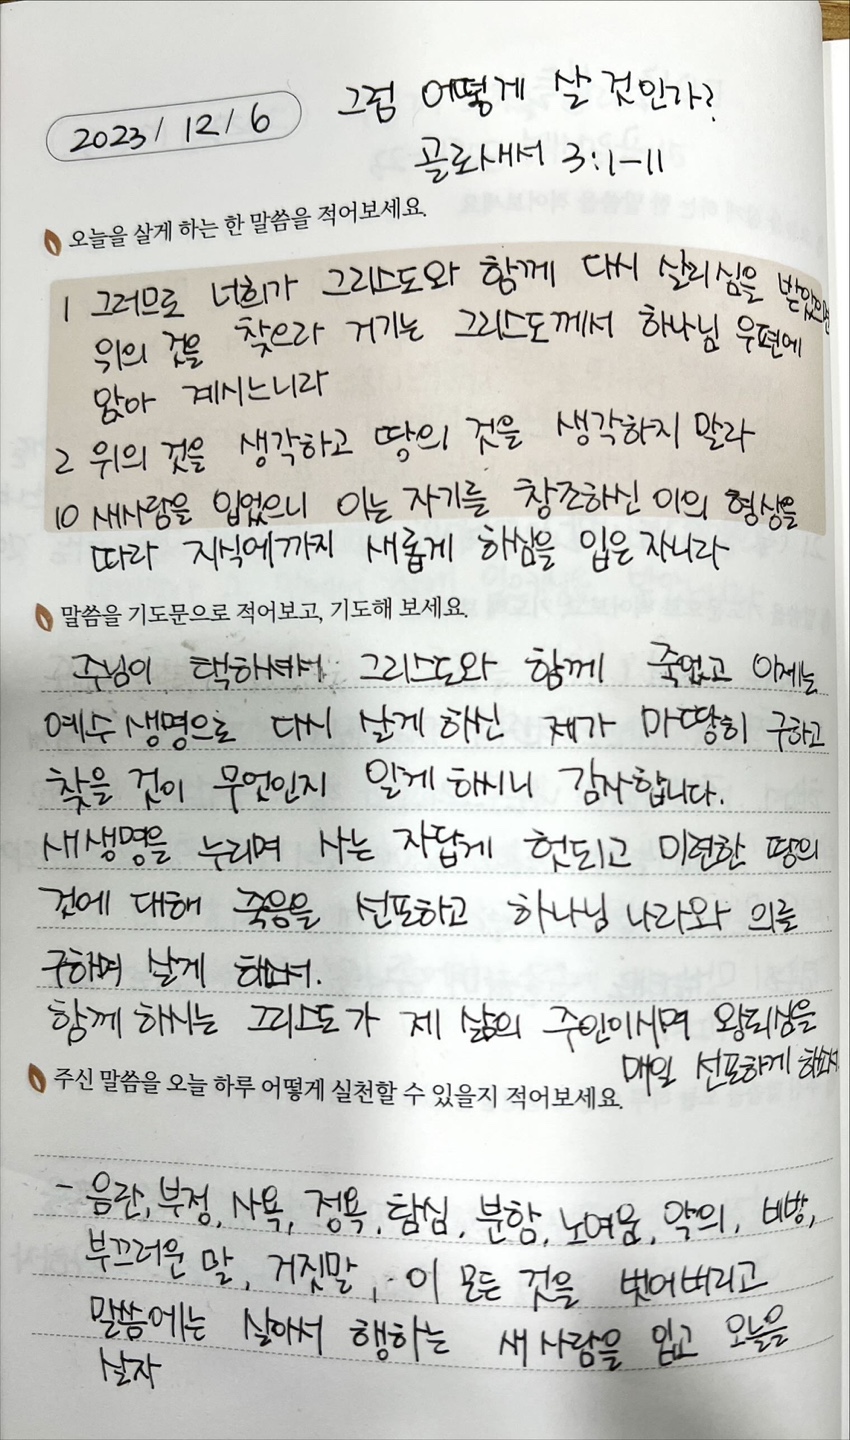 2023/ 12/ 6
그럼 어떻게 살 것인가?
골로새서 3:1-11
오늘을 살게 하는 한 말씀을 적어보세요.
1 그러므로 너희가 그리스도와 함께 다시 살리심을 받았으면
위의 것을 찾으라 거기는 그리스도께서 하나님 우편에
앉아 계시느니라
2 위의 것을 생각하고 땅의 것을 생각하지 말라
10 새사람을 입었으니 이는 자기를 창조하신 이의 형상을
따라 지식에까지 새롭게 하심을 입은 자니라
말씀을 기도문으로 적어보고, 기도해 보세요.
주님이 택하셔서 그리스도와 함께 죽었고 이제는
예수 생명으로 다시 살게 하신 제가 마땅히 구하고
찾을 것이 무엇인지 알게 하시니 감사합니다.
새생명을 누리며 사는 자답게 헛되고 미련한 땅의
것에 대해 죽음을 선포하고 하나님 나라와 의를
구하며 살게 하소서.
함께 하시는 그리스도가 제 삶의 주인이시며 왕되심을
매일 선포하게 하소서
주신 말씀을 오늘 하루 어떻게 실천할 수 있을지 적어보세요.
- 음란, 부정, 사욕, 정욕, 탐심, 분함, 노여움, 악의, 비방,
부끄러운 말, 거짓말, 이 모든 것을 벗어버리고
말씀에는 살아서 행하는 새 사람을 입고 오늘을
살자